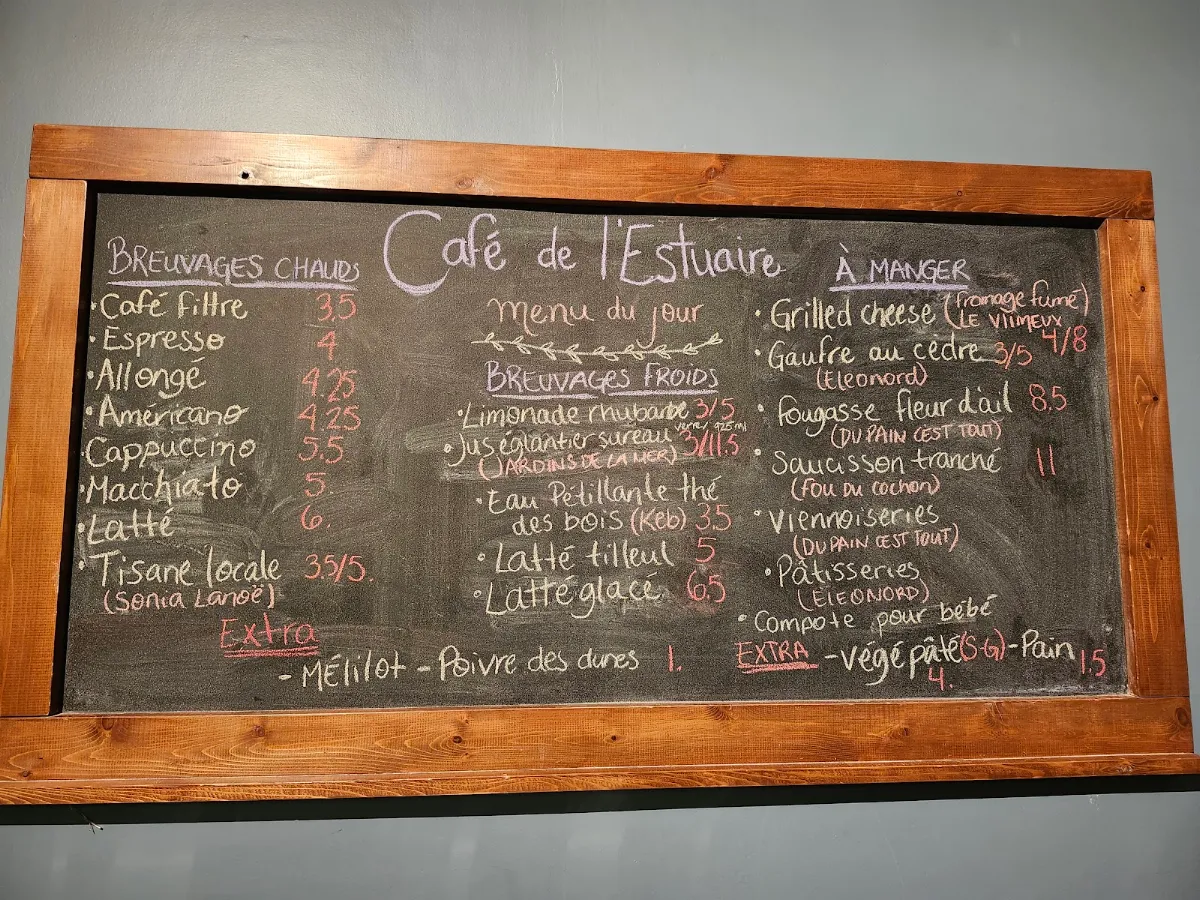 Café de l'Estuaire
menu du jour
BREUVAGES CHAUDS
• Café filtre 3,5
• Espresso 4
• Allongé 4.25
• Américano 4.25
• Cappuccino 5.5
• Macchiato 5.
• Latté 6.
• Tisane locale 3.5/5.
(Sonia Lanoë)
Extra
- MÉlilot - Poivre des dunes 1.
BREUVAGES FROIDS
• Limonade rhubarbe 3/5
• Jus églantier sureau verre 925 ml 3/11.5
(JARDINS DE LA MER)
• Eau Pétillante thé
des bois (Keb) 3.5
• Latté tilleul 5
• Latté glacé 6.5
À MANGER
• Grilled cheese (fromage fumé)
LE VIIMEUX 4/8
• Gaufre au cèdre 3/5
(Eleonord)
• fougasse fleur d'ail 8.5
(DU PAIN C'EST TOUT)
• Saucisson tranché 11
(fou Du cochon)
• Viennoiseries
(DU PAIN C'EST TOUT)
• Pâtisseries
(ELEONORD)
• Compote pour bébé
EXTRA - végé pâté (S-G) - Pain 1.5
4.